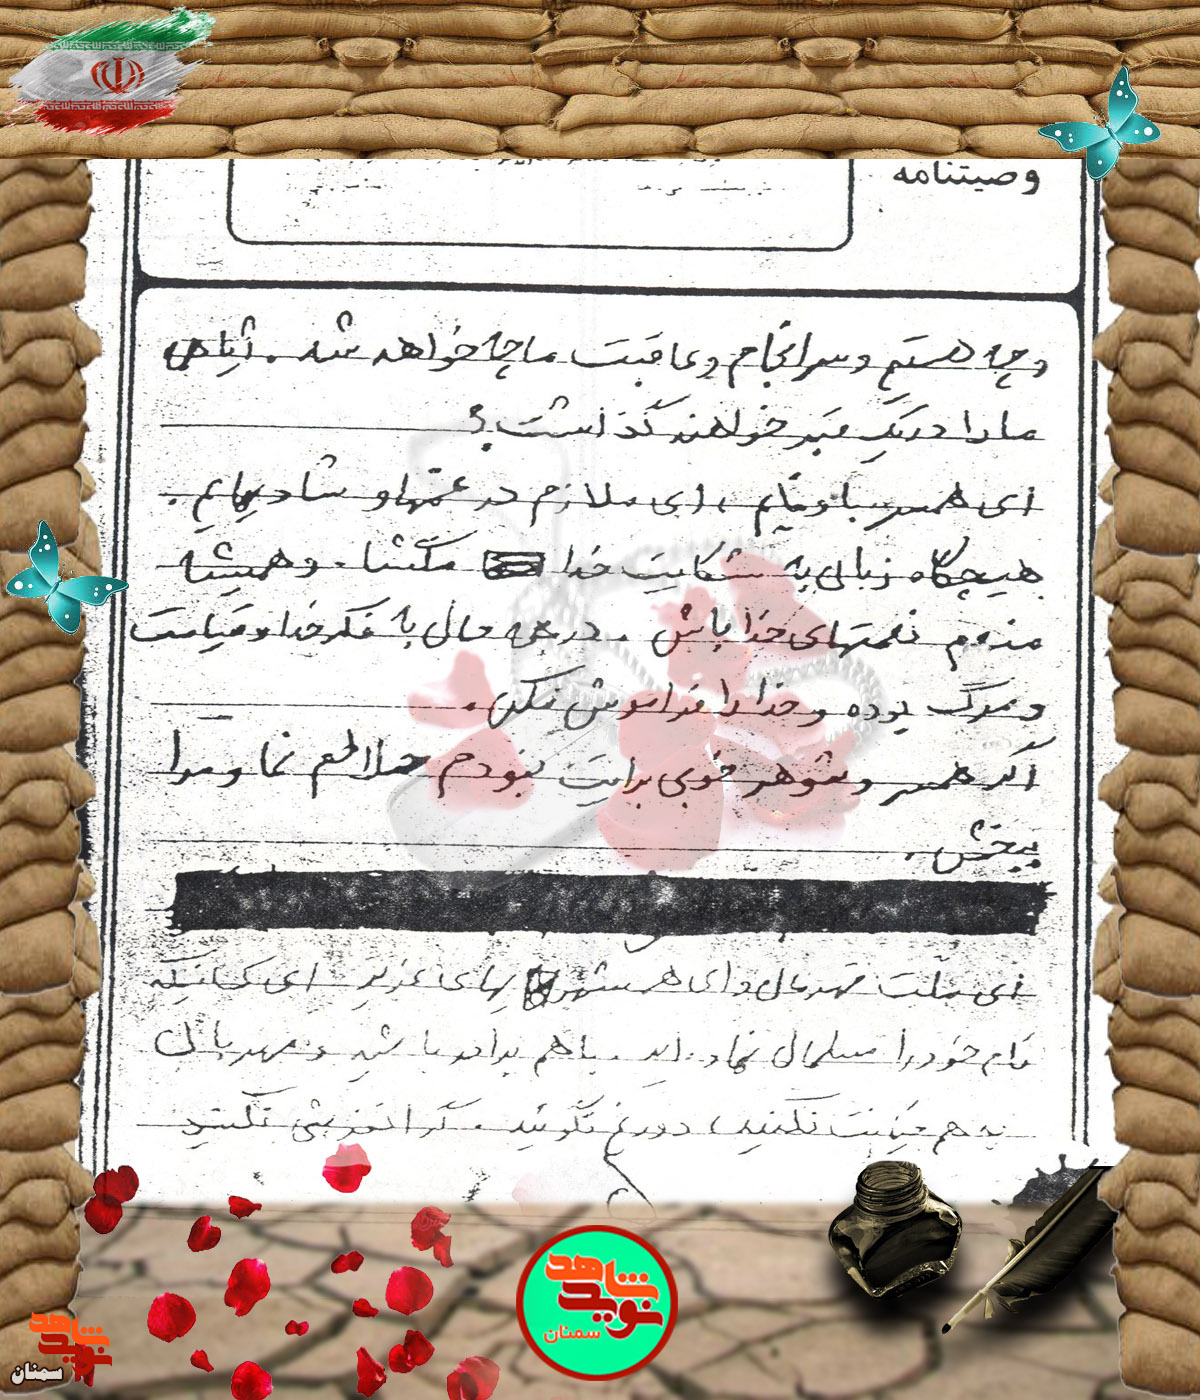 وصیتنامه
و چه هستم و سرانجام و عاقبت ما چه خواهد شد.
ما را در یک قبر خواهند گذاشت؟
ای همسر با وفایم، ای ملازم در غمها و شادیهایم.
هیچگاه زبان به شکایت خدا مگشا. و همیشه
ممنون نعمتهای خدا باش. در هر حال به فکر خدا و قیامت
و مرگ بوده و خدا را فراموش نکن.
اگر همسر و شوهر خوبی برایت نبودم حلالم نما و مرا
ببخش.
ای ملت قهرمان و ای همشهریهای عزیز. ای کسانیکه
نام خود را مسلمان نهاده‌اید. با هم برادر باشید و مهربان
به هم خیانت نکنید، دورغ نگوئید. گرانفروشی نکنید
نوید شاهد
سمنان
نوید شاهد
سمنان